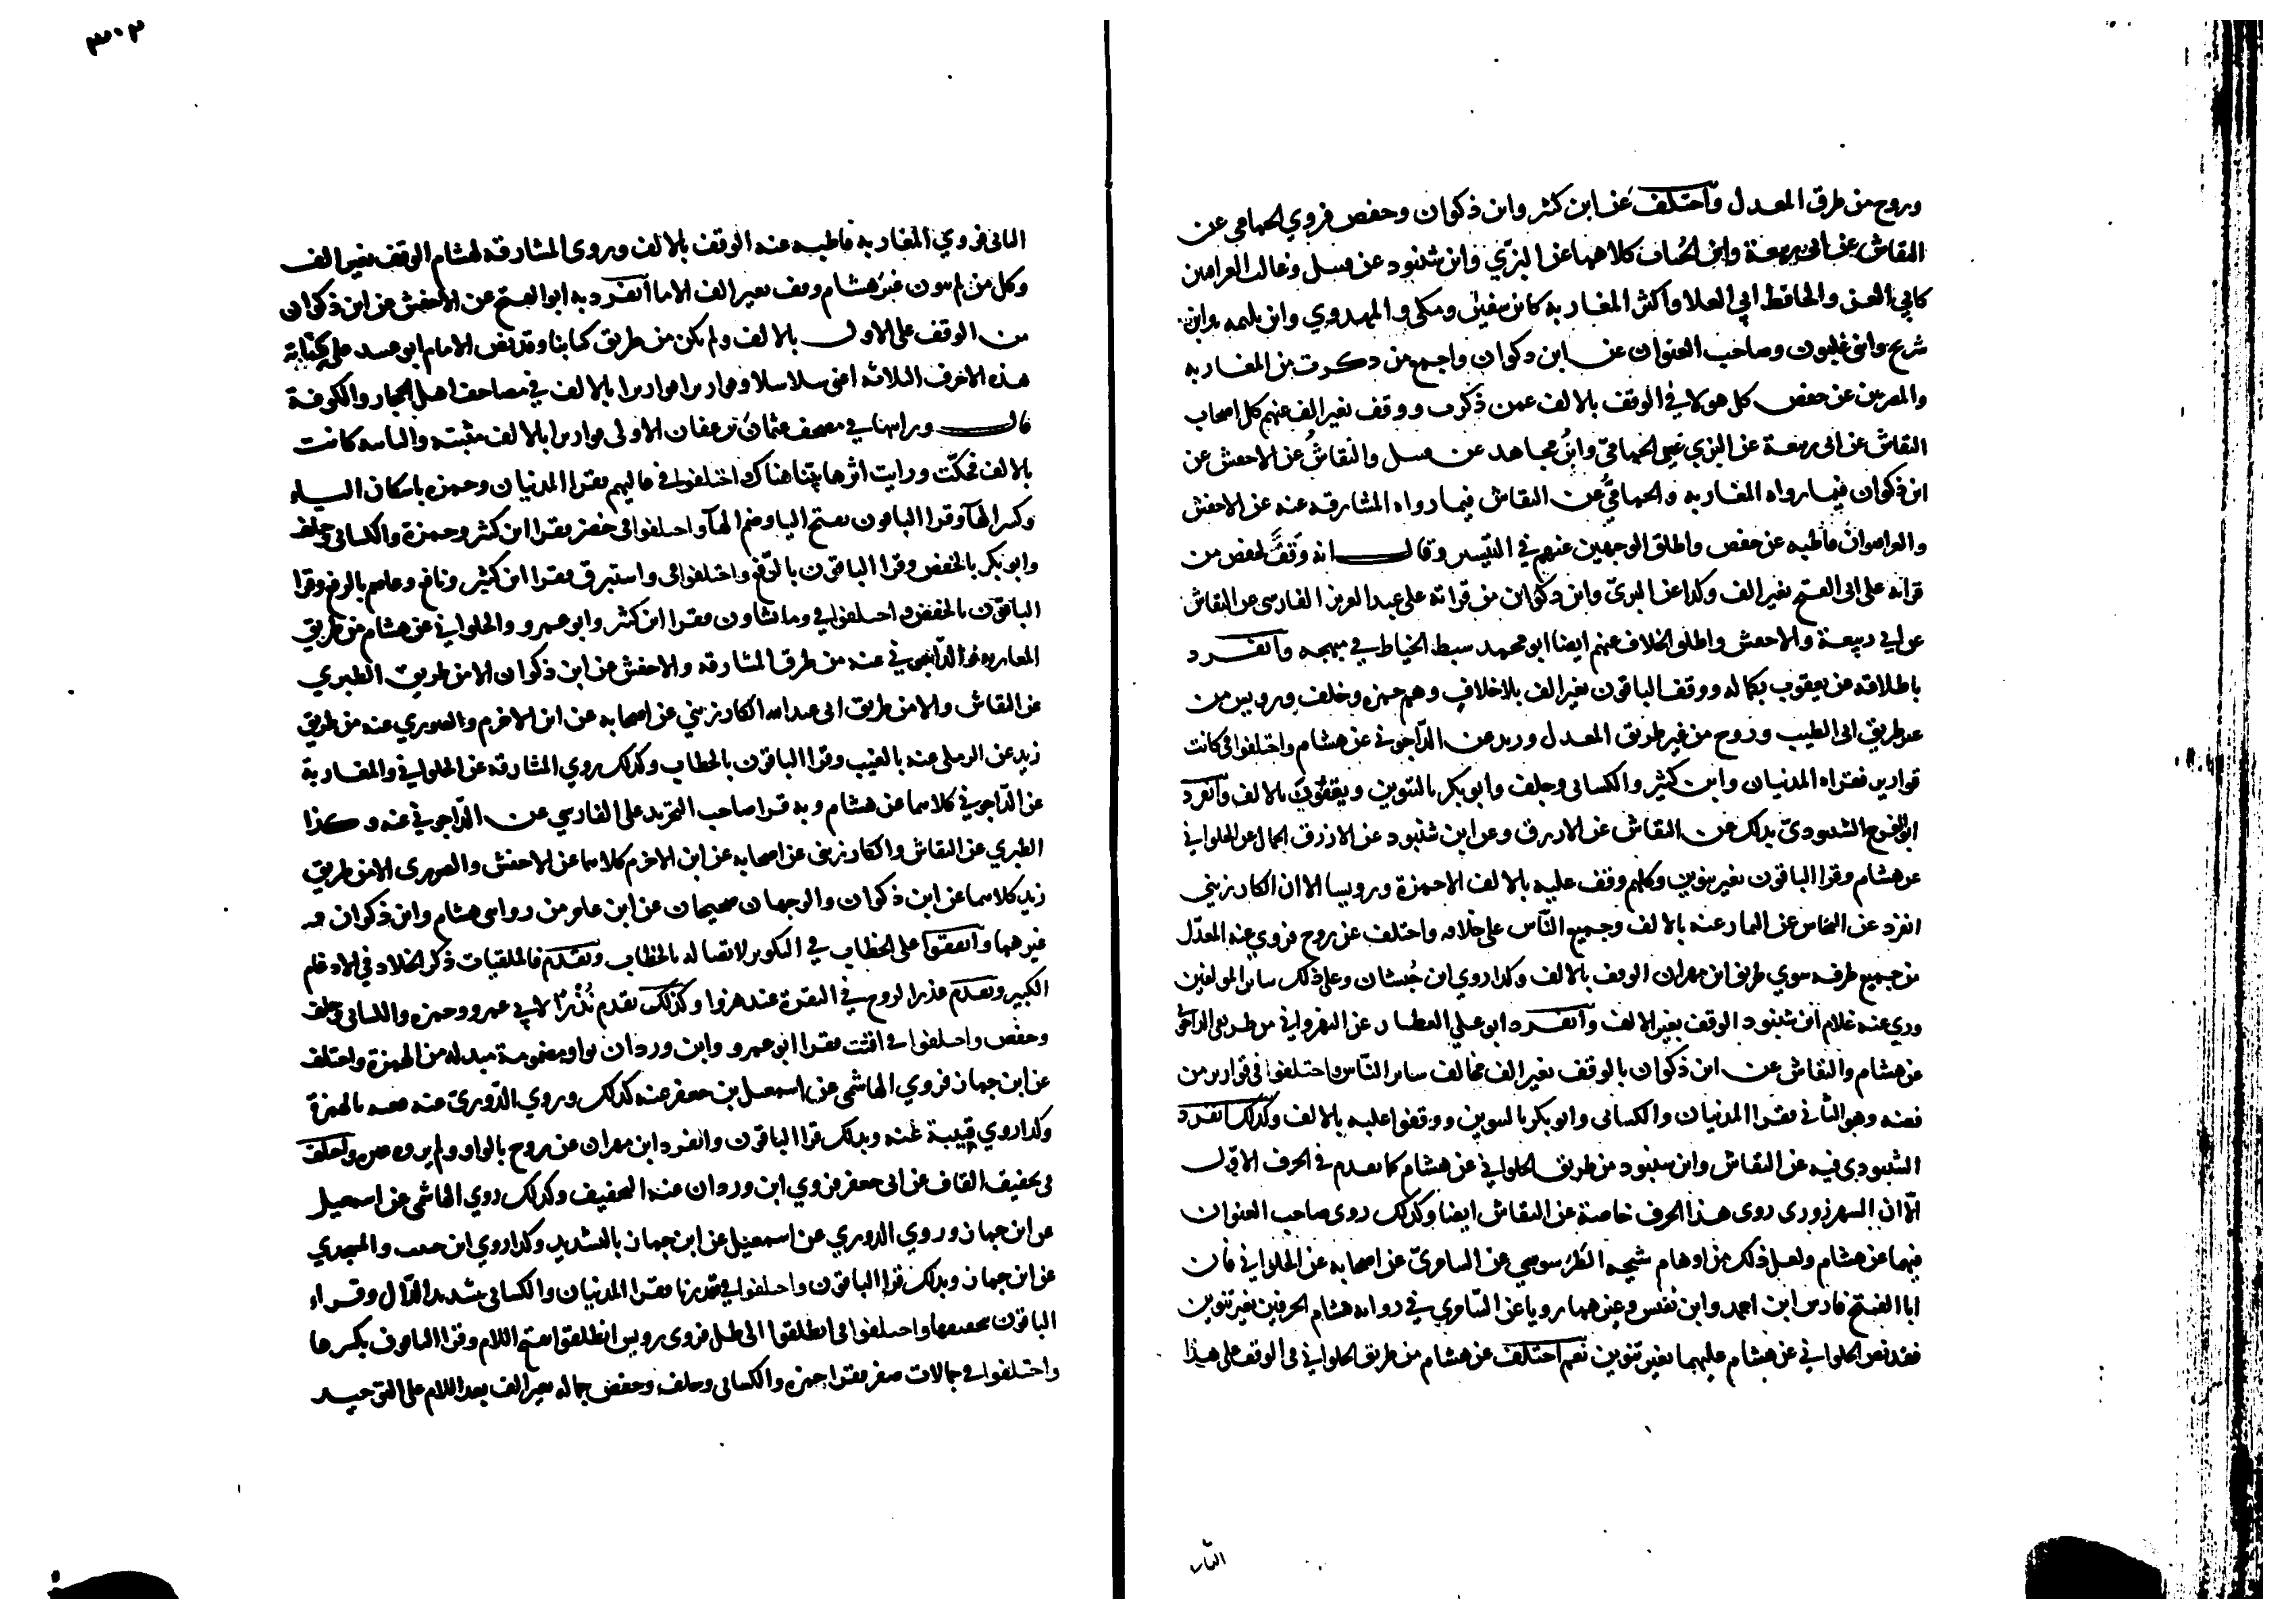 وروح من طرق المعدل واختلف عن ابن كثير وابن ذكوان وحفص فروي الحمامي عن
النقاش عن ابي ربيعة وابن الحباب كلاهما عن البزّي وابن شنبود عن قنبل وغالب العراقيين
كابي العز والحافظ ابي العلا واكثر المغاربه كابن سفين ومكي والمهدوي وابن بليمه وابن
شريح وابني غلبون وصاحب العنوان عن ابن ذكوان واجمع من ذكرت من المغاربه
والمصريين عن حفص كل هولا في الوقف بالالف عمن ذكرت ووقف بغير الف عنهم كل اصحاب
النقاش عن ابي ربيعة عن البزي غير الحمامي وابن مجاهد عن قنبل والنقاش عن الاخفش عن
ابن ذكوان فيما رواه المغاربه والحمامي عن النقاش فيما رواه المشارقه عنه عن الاخفش
والعراقيون قاطبه عن حفص واطلق الوجهين عنهم في التيسير وقال انه وقف لحفص من
قراته على ابي الفتح بغير الف وكذا عن البزي وابن ذكوان من قراته على عبد العزيز الفارسي عن النقاش
عن ابي ربيعة والاخفش واطلق الخلاف عنهم ايضا ابو محمد سبط الخياط في مبهجه وانفرد
باطلاقه عن يعقوب بكماله ووقف الباقون بغير الف بلاخلاف وهم حمزه وخلف ورويس من
غير طريق ابي الطيب وروح من غير طريق المعدل وزيد عن الداجوني عن هشام واختلفوا في كانت
قوارير فقراه المدنيان وابن كثير والكسائي وخلف وابو بكر بالتنوين ويقفون بالالف وانفرد
ابو الفرج الشنبوذي بذلك عن النقاش عن الازرق وعن ابن شنبود عن الازرق الجمال عن الحلواني
عن هشام وقرا الباقون بغير تنوين وكلهم وقف عليه بالالف الا حمزة ورويسا الا ان الكارزيني
انفرد عن النخاس عن التمار عنه بالالف وجميع الناس على خلافه واختلف عن روح فروي عنه المعدّل
من جميع طرقه سوي طريق ابن مهران الوقف بالالف وكذا روي ابن حُبشان وعلى ذلك ساير المولفين
وروي عنه غلام ابن شنبود الوقف بغير الالف وانفرد ابو علي العطار عن النهرواني من طريقي الداجوني
عن هشام والنقاش عن ابن ذكوان بالوقف بغير الف فخالف ساير الناس واختلفوا في قوارير من
فضه وهو الثاني فقرا المدنيان والكسائي وابو بكر بالتنوين ووقفوا عليه بالالف وكذلك انفرد
الشنبودي فيه عن النقاش وابن شنبود من طريق الحلواني عن هشام كما تقدم في الحرف الاول
الّا ان الشهرزوري روى هذا الحرف خاصة عن النقاش ايضا وكذلك روى صاحب العنوان
فيهما عن هشام ولعل ذلك من اوهام شيخه الطرسوسي عن السامري عن اصحابه عن الحلواني فان
ابا الفتح فارس ابن احمد وابن نفيس وغيرهما رويا عن السامري في رواية هشام الحرفين بغير تنوين
فقد نص الحلواني عن هشام عليهما بغير تنوين نعم اختلف عن هشام من طريق الحلواني في الوقف على هذا
الثاني
٣٠٢
الثاني فروي المغاربه قاطبه عنه الوقف بالالف وروى المشارقه لهشام الوقف بغير الف
وكل من لم ينون غير هشام وقف بغير الف الا ما انفرد به ابو الفتح عن الاخفش عن ابن ذكوان
من الوقف على الاول بالالف ولم يكن من طريق كتابنا وقد نص الامام ابو عبيد على كتابة
هذه الاحرف الثلاثه اعني سلاسلا وقواريرا قواريرا بالالف في مصاحف اهل الحجاز والكوفة
قال ورايتها في مصحف عثمان بن عفان الاولى قواريرا بالالف مثبته والثانيه كانت
بالالف فحكّت ورايت اثرها بيّنا هناك اختلفوا في عاليهم فقرا المدنيان وحمزه باسكان الياء
وكسر الهآ وقرا الباقون بفتح اليا وضم الهآ واختلفوا في خضر فقرا ابن كثير وحمزة والكسائي وخلف
وابو بكر بالخفض وقرا الباقون بالرّفع واختلفوا في واستبرق فقرا ابن كثير ونافع وعاصم بالرفع وقرا
الباقون بالخفض واختلفوا في وما تشاون فقرا ابن كثير وابو عمرو والحلواني عن هشام من طريق
المغاربه والدّاجوني عنه من طرق المشارقه والاخفش عن ابن ذكوان الا من طريق الطبري
عن النقاش والا من طريق ابي عبد الله الكارزيني عن اصحابه عن ابن الاخرم والصوري عنه من طريق
زيد عن الرملي عنه بالغيب وقرا الباقون بالخطاب وكذلك روي المشارقه عن الحلواني والمغاربة
عن الدّاجوني كلاهما عن هشام وبه قرا صاحب التجريد على الفارسي عن الدّاجوني عنه وكذا
الطبري عن النقاش والكارزيني عن اصحابه عن ابن الاخرم كلاهما عن الاخفش والصوري الا من طريق
زيد كلاهما عن ابن ذكوان والوجهان صحيحان عن ابن عامر من روايتي هشام وابن ذكوان
غيرهما واتفقوا على الخطاب في التكوير لاتصاله بالخطاب وتقدم فالملقيات ذكر الخلاد في الادغام
الكبير وتقدم عذرا لروح في البقرة عند هزوا وكذلك تقدم نُذْرًا لابي عمرو وحمزه والكسائي وخلف
وحفص واختلفوا في اقتت فقرا ابو عمرو وابن وردان بواو مضمومة مبدله من الهمزة واختلف
عن ابن جماز فروي الهاشمي عن اسمعيل بن جعفر عنه كذلك وروي الدّوري عنه عنه بالهمزة
وكذا روي قتيبة عنه وبذلك قرا الباقون وانفرد ابن مهران عن روح بالواو ولم يروه غيره واختلف
في تخفيف القاف عن ابي جعفر فروي ابن وردان عنه التخفيف وكذلك روي الهاشمي عن اسمعيل
عن ابن جماز وروي الدوري عن اسمعيل عن ابن جماز بالتشديد وكذا روي ابن حبيب والمسجدي
عن ابن جماز وبذلك قرا الباقون واختلفوا في فقدرنا فقرا المدنيان والكسائي بتشديد الدّال وقراء
الباقون بتخفيفها واختلفوا في انطلقوا الى ظل فروى رويس انطلقوا بفتح اللام وقرا الباقون بكسرها
واختلفوا في جمالات صفر فقرا حمزه والكسائي وخلف وحفص جماله بغير الف بعد اللام على التوحيد